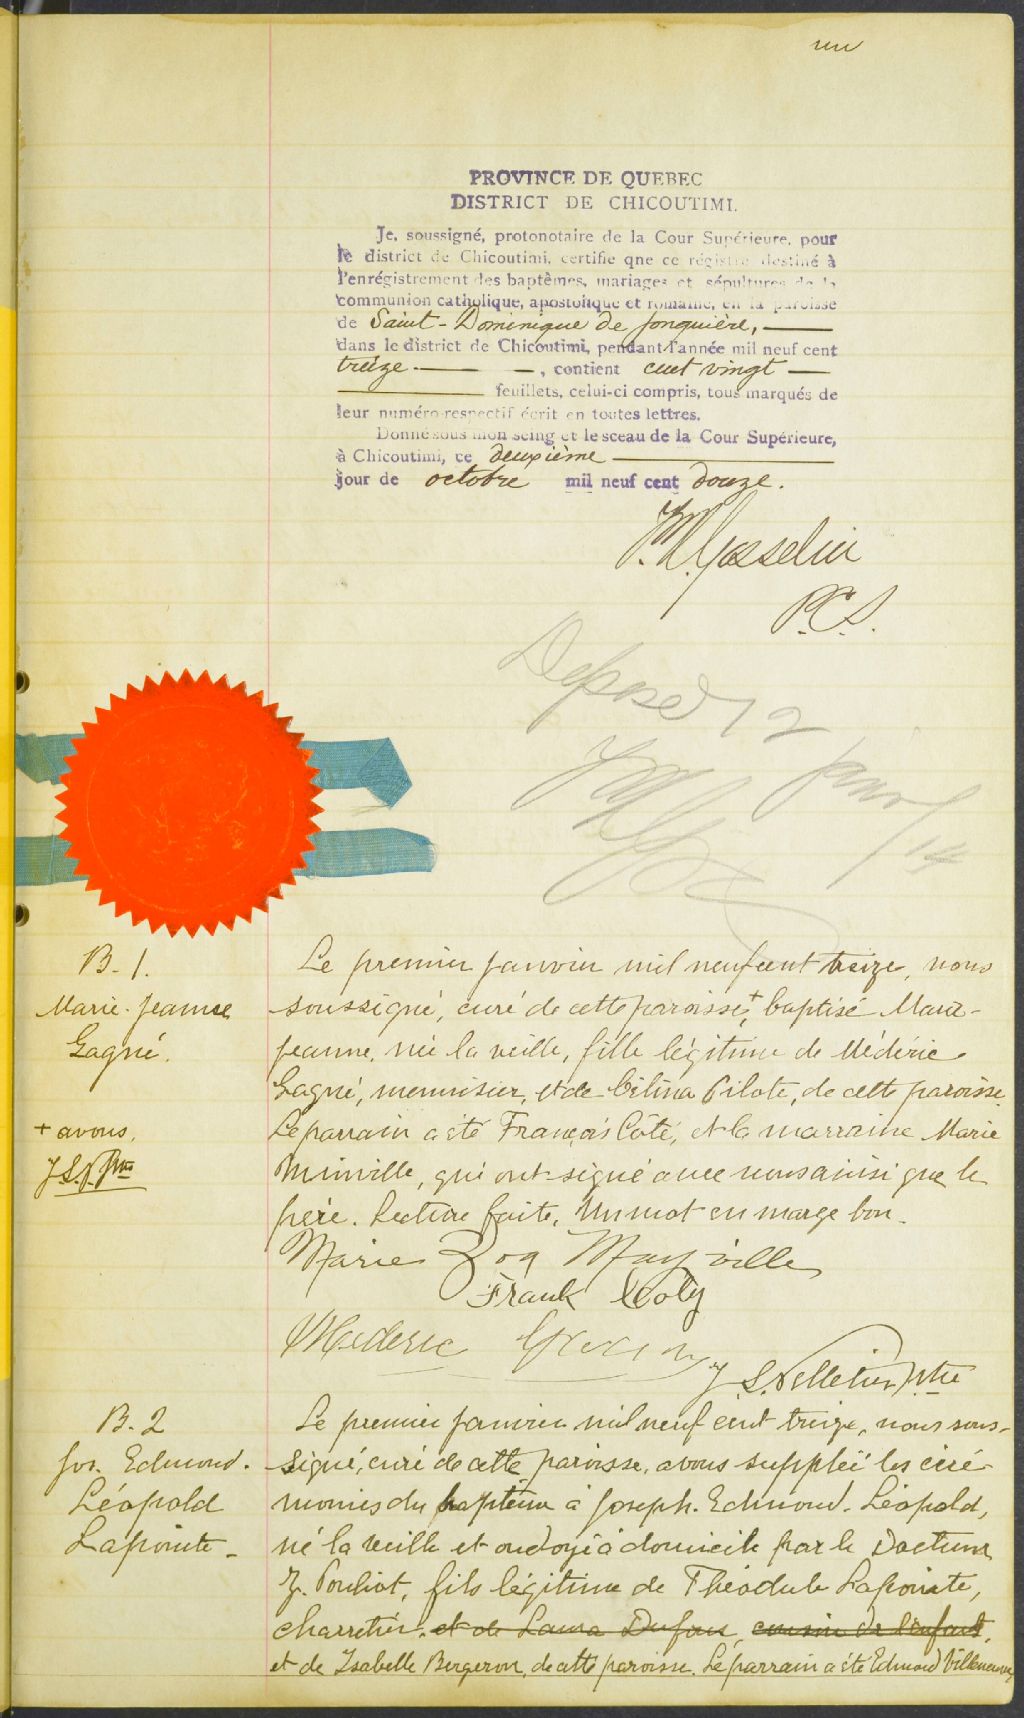 un
PROVINCE DE QUEBEC
DISTRICT DE CHICOUTIMI.
Je, soussigné, protonotaire de la Cour Supérieure, pour
le district de Chicoutimi, certifie qne ce régistre destiné à
l'enrégistrement des baptêmes, mariages et sépultures de la
communion catholique, apostolique et romaine, en la paroisse
de Saint-Dominique de Jonquière,
dans le district de Chicoutimi, pendant l'année mil neuf cent
treize, contient cent vingt
feuillets, celui-ci compris, tous marqués de
leur numéro respectif écrit en toutes lettres.
Donné sous mon seing et le sceau de la Cour Supérieure,
à Chicoutimi, ce deuxième
jour de octobre mil neuf cent douze.
Gosselin
P.C.S.
Déposé 12
janv/14
B. 1.
Marie-Jeanne
Gagné.
+ avons.
J.S.P. Ptre
Le premier janvier mil neuf cent treize, nous
soussigné, curé de cette paroisse,+ baptisé Marie-
Jeanne, née la veille, fille légitime de Médéric
Gagné, menuisier, et de Célina Pilote, de cette paroisse.
Le parrain a été François Côté, et la marraine Marie
Minville, qui ont signé avec nous ainsi que le
père. Lecture faite. Un mot en marge bon.
Marie Mayville
Frank Coty
Mederic
J.S. Pelletier Ptre
B. 2
Jos. Edmond.
Léopold
Lapointe
Le premier janvier mil neuf cent treize, nous sous-
signé, curé de cette paroisse, avons suppléé les céré-
monies du baptême à Joseph. Edmond. Léopold,
né la veille et ondoyé à domicile par le Docteur
J. Pouliot, fils légitime de Théodule Lapointe,
charretier, et de Laura Dufour, cousin de l'enfant,
et de Isabelle Bergeron, de cette paroisse. Le parrain a été Edmond Villeneuve